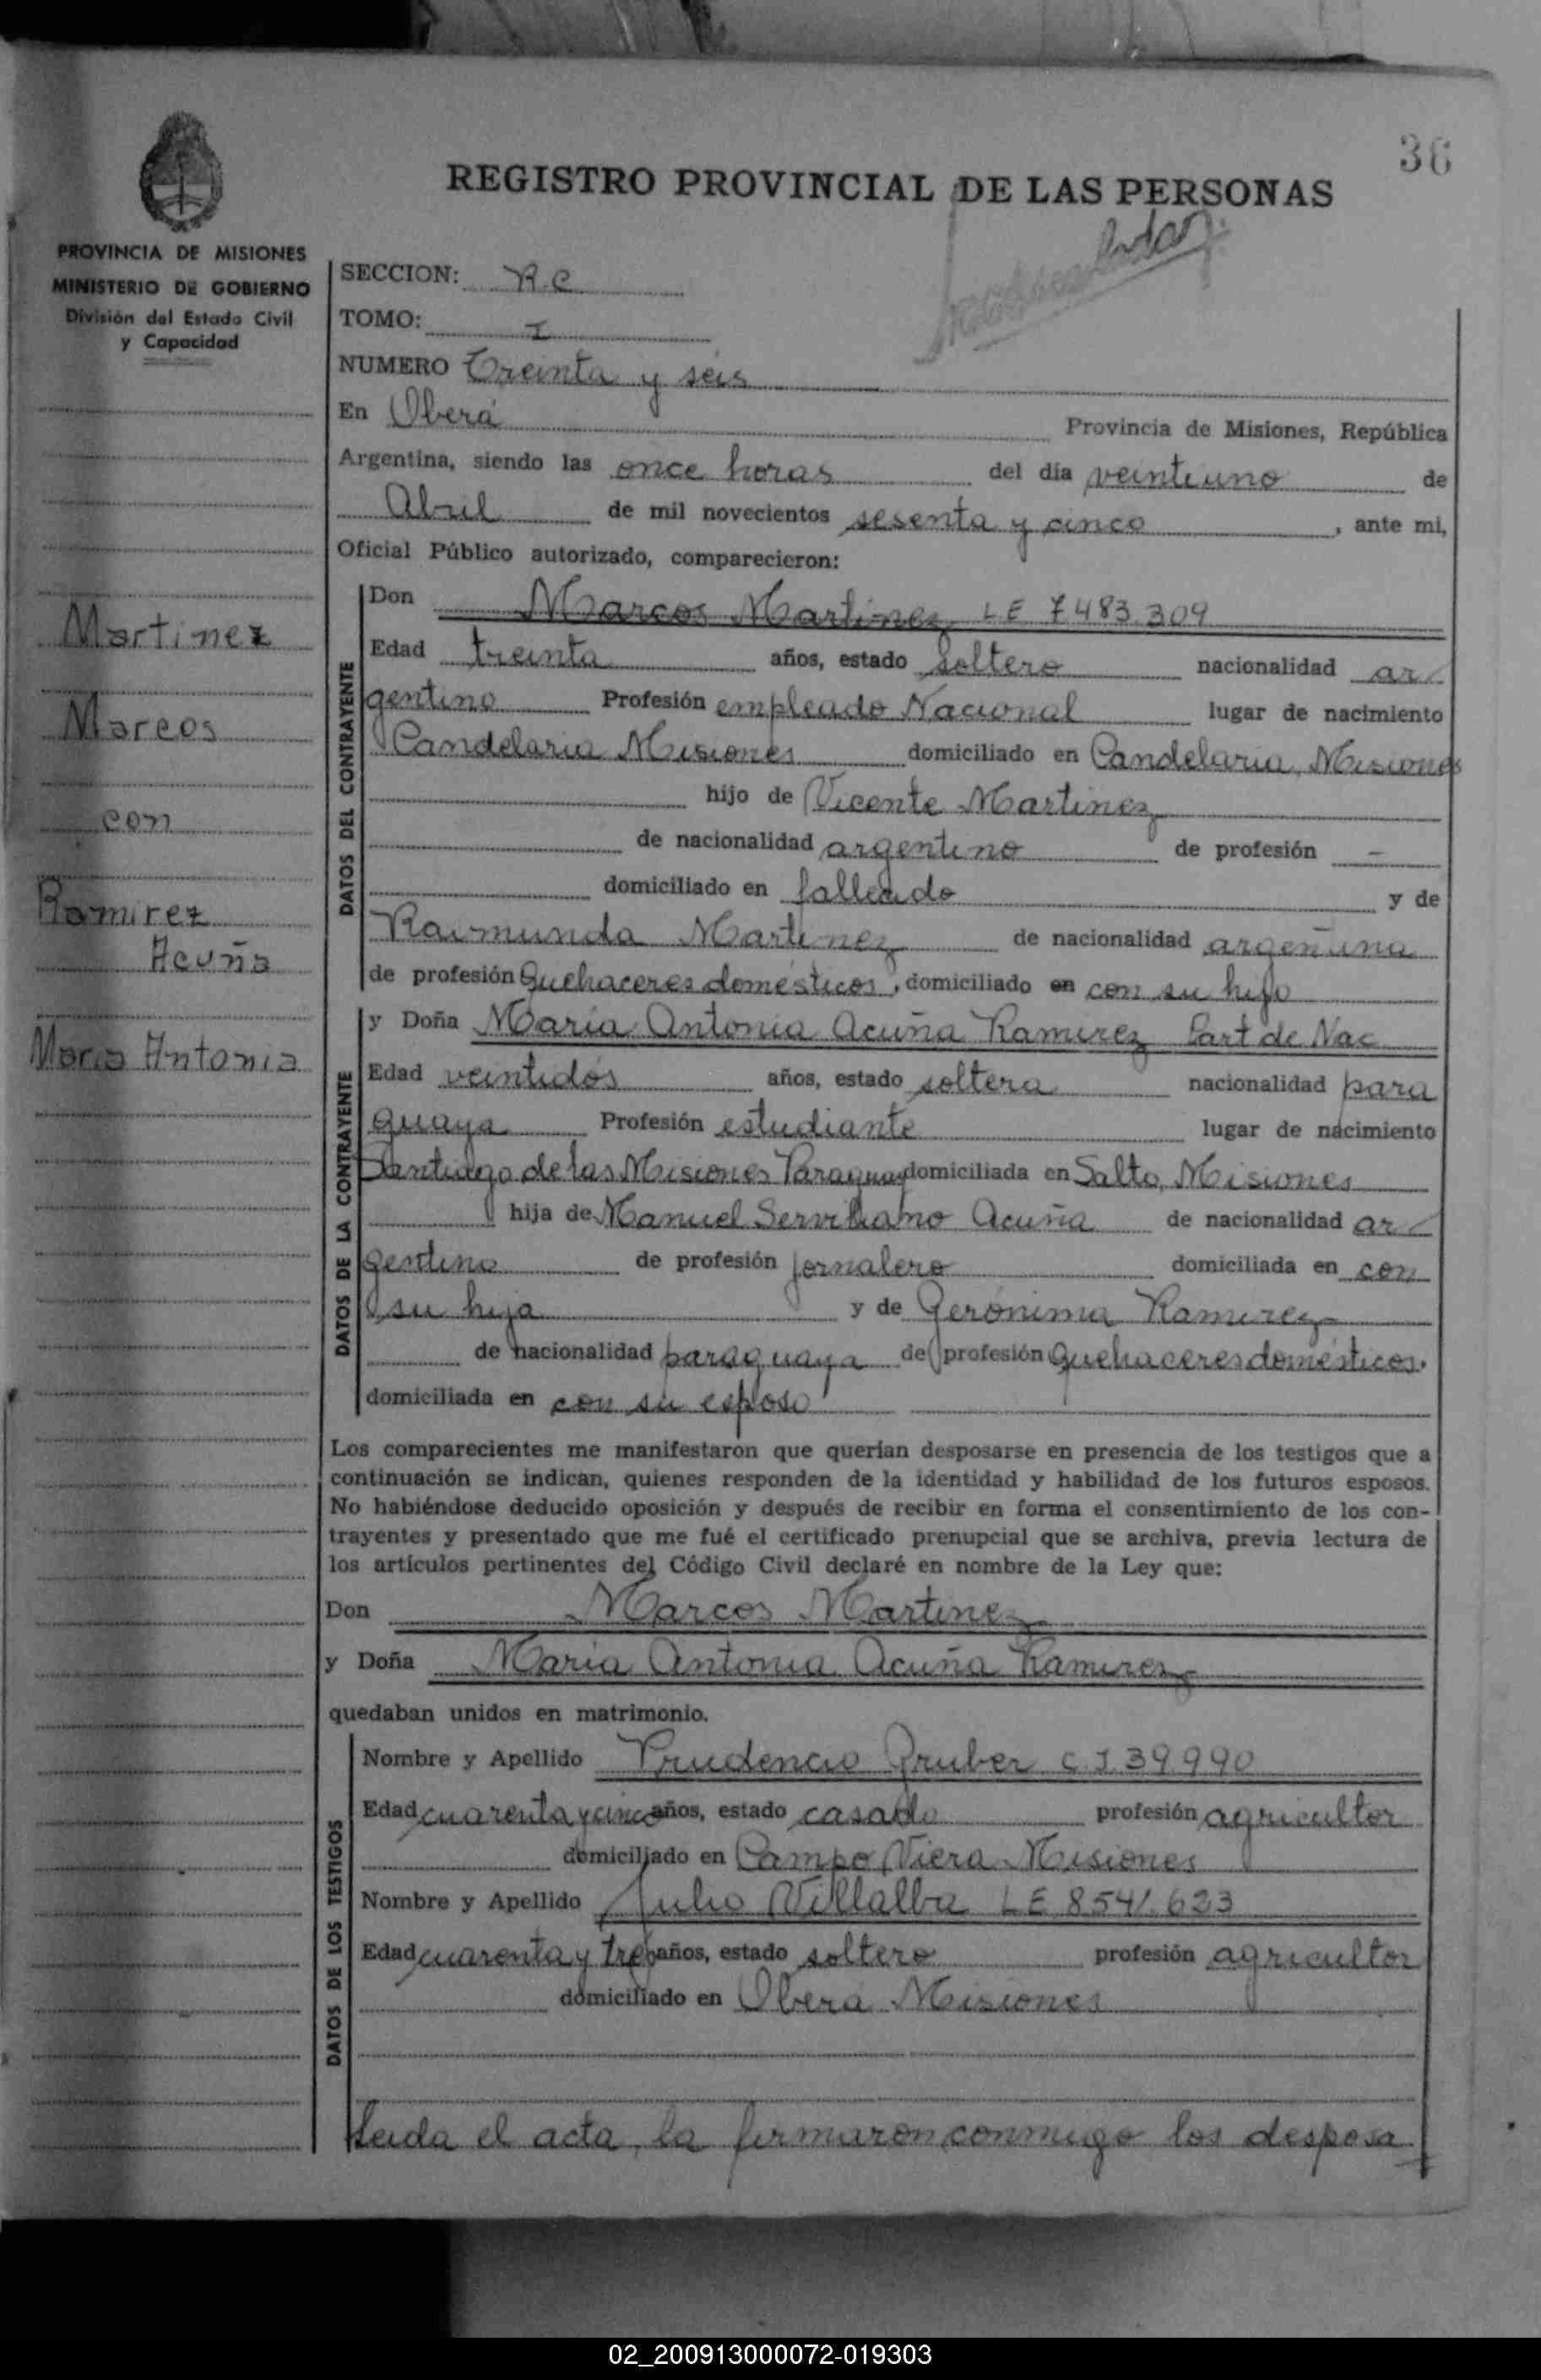 36
REGISTRO PROVINCIAL DE LAS PERSONAS
PROVINCIA DE MISIONES
MINISTERIO DE GOBIERNO
División del Estado Civil
y Capacidad
Martinez
Marcos
con
Ramirez
Acuña
Maria Antonia
SECCION: R.C
TOMO: I
NUMERO Treinta y seis
En Oberá Provincia de Misiones, República
Argentina, siendo las once horas del día veintiuno de
Abril de mil novecientos sesenta y cinco, ante mi,
Oficial Público autorizado, comparecieron:
DATOS DEL CONTRAYENTE
Don Marcos Martinez LE 7483.309
Edad treinta años, estado soltero nacionalidad ar
gentino Profesión empleado Nacional lugar de nacimiento
Candelaria Misiones domiciliado en Candelaria, Misiones
hijo de Vicente Martinez
de nacionalidad argentino de profesión —
domiciliado en fallecido y de
Raimunda Martinez de nacionalidad argentina
de profesión Quehaceres domésticos, domiciliado en con su hijo
DATOS DE LA CONTRAYENTE
y Doña María Antonia Acuña Ramirez Part de Nac
Edad veintidós años, estado soltera nacionalidad para
guaya Profesión estudiante lugar de nacimiento
Santiago de las Misiones Paraguay domiciliada en Salto, Misiones
hija de Manuel Serviliano Acuña de nacionalidad ar
gentino de profesión jornalero domiciliada en con
su hija y de Gerónima Ramirez
de nacionalidad paraguaya de profesión Quehaceres domésticos.
domiciliada en con su esposo
Los comparecientes me manifestaron que querían desposarse en presencia de los testigos que a
continuación se indican, quienes responden de la identidad y habilidad de los futuros esposos.
No habiéndose deducido oposición y después de recibir en forma el consentimiento de los con-
trayentes y presentado que me fué el certificado prenupcial que se archiva, previa lectura de
los artículos pertinentes del Código Civil declaré en nombre de la Ley que:
Don Marcos Martinez
y Doña María Antonia Acuña Ramirez
quedaban unidos en matrimonio.
DATOS DE LOS TESTIGOS
Nombre y Apellido Prudencio Gruber C.I. 39.990
Edad cuarenta y cinco años, estado casado profesión agricultor
domiciliado en Campo Viera Misiones
Nombre y Apellido Julio Villalba LE 8541.623
Edad cuarenta y tres años, estado soltero profesión agricultor
domiciliado en Oberá Misiones
Leida el acta, la firmaron conmigo los desposa
02_200913000072-019303